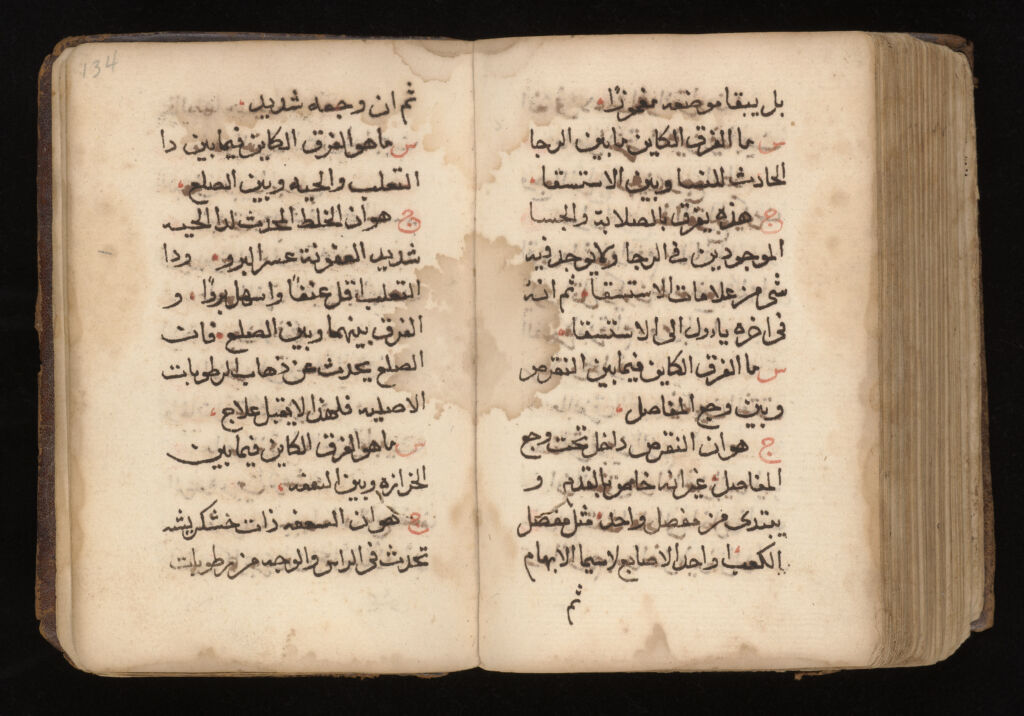 بل يبقا موضعه مغموزا.
س ما الفرق الكاين فيما بين الرجا
الحادث للنسا وبين الاستسقا.
ج هذه يفرق بالصلابة والجسا
الموجودين في الرجا ولا يوجد فيه
شي من علامات الاستسقا. ثم انه
في اخره ياول الى الاستسقا.
س ما الفرق الكاين فيما بين النقرس
وبين وجع المفاصل.
ج هو ان النقرس داخل تحت وجع
المفاصل. غير انه خاص بالقدم و
يبتدى من مفصل واحد. مثل مفصل
الكعب او احد الاصابع لاسيما الابهام
ثم
134
ثم ان وجعه شديد.
س ما هو الفرق الكاين فيما بين دا
التعلب والحيه وبين الصلع.
ج هو ان الخلط المحدث لدا الحيه
شديد العفونة عسر البرو. ودا
التعلب اقل عنفا واسهل بروا. و
الفرق بينهما وبين الصلع. فان
الصلع يحدث عن ذهاب الرطوبات
الاصليه فلهذا لا يقبل علاج.
س ما هو الفرق الكاين فيما بين
الحزازه وبين السعفه.
ج هو ان السعفه ذات خشكريشه
تحدث في الراس والوجه من رطوبات